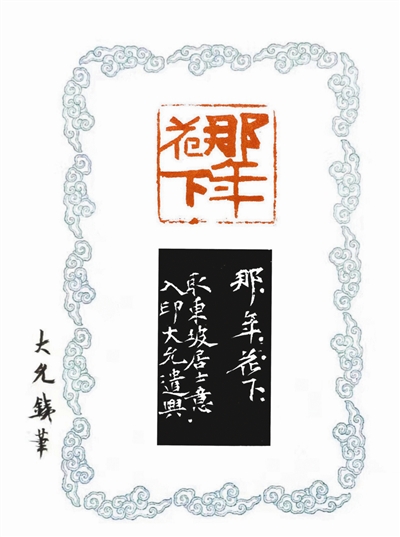 那年
花下
那年花下
取東坡居士意
入印大允遣興
大允銕筆